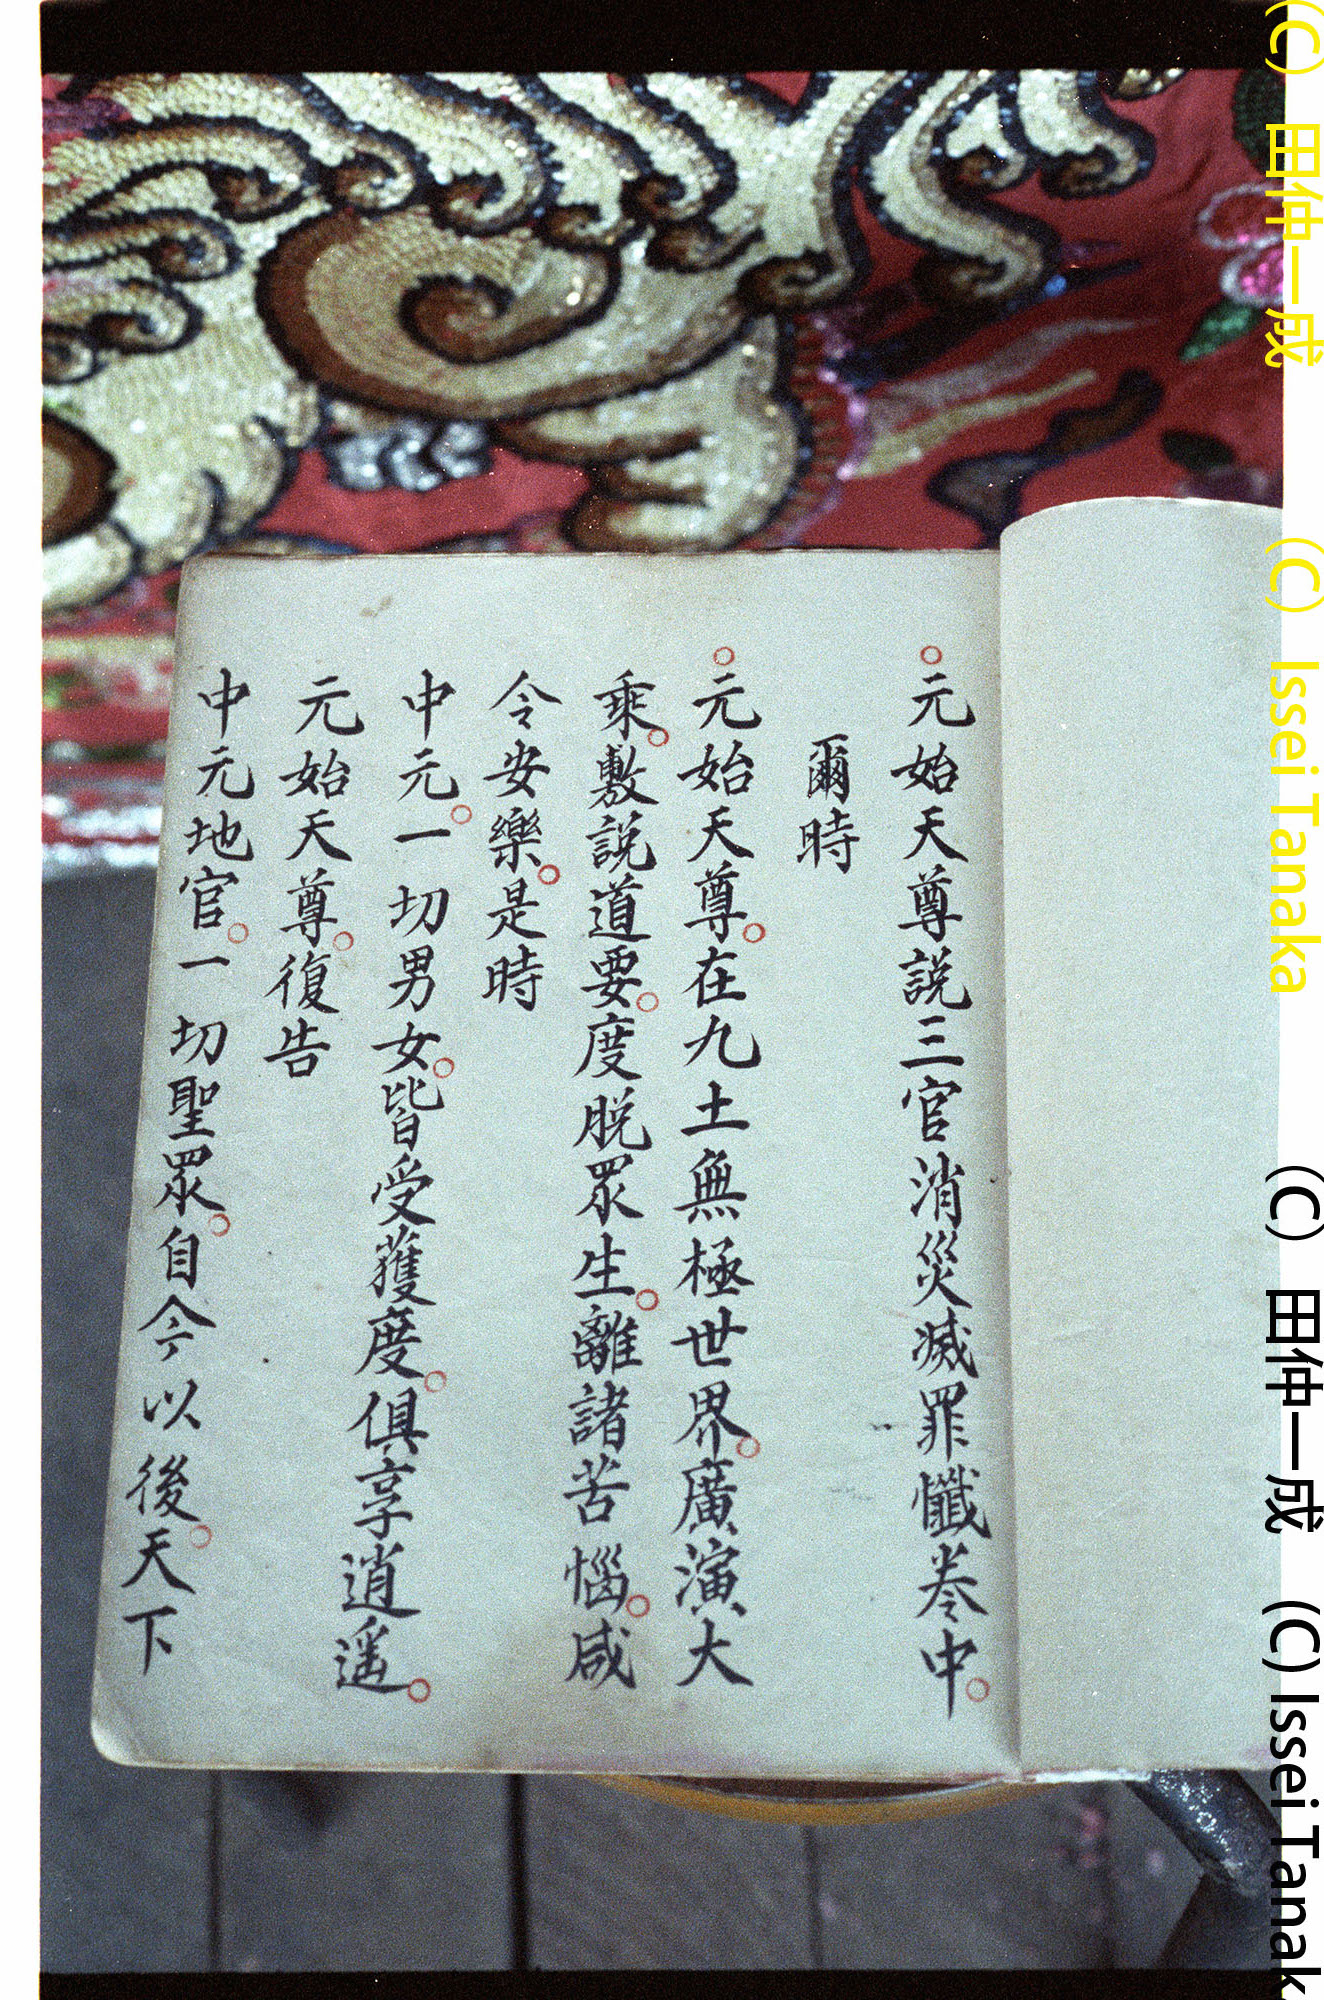 元始天尊説三官消災滅罪懺卷中
爾時
元始天尊在九土無極世界廣演大
乘敷説道要度脱眾生離諸苦惱咸
令安樂是時
中元一切男女皆受獲度俱享逍遥
元始天尊復告
中元地官一切聖眾自今以後天下
(C) 田仲一成 (C) Issei Tanaka
(C) 田仲一成 (C) Issei Tanak